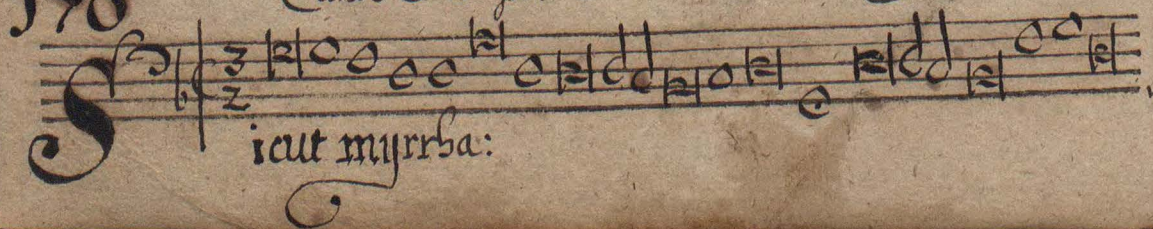 170
3
2
Sicut myrrha: